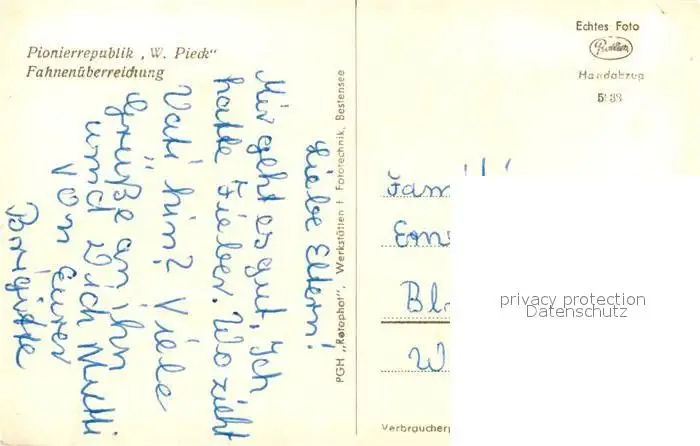 Pionierrepublik „W. Pieck"
Fahnenüberreichung
Liebe Eltern!
Mir geht es gut, Ich
hatte Fieber. Wo zieht
Vati hin? Viele
Grüße an ihn
und Dich Mutti
von Eurer
Brigitte
PGH „Rotophot", Werkstätten f. Fototechnik, Bestensee
Echtes Foto
Handabzug
Fami
Ern
Bl
W
privacy protection
Datenschutz
Verbraucherp